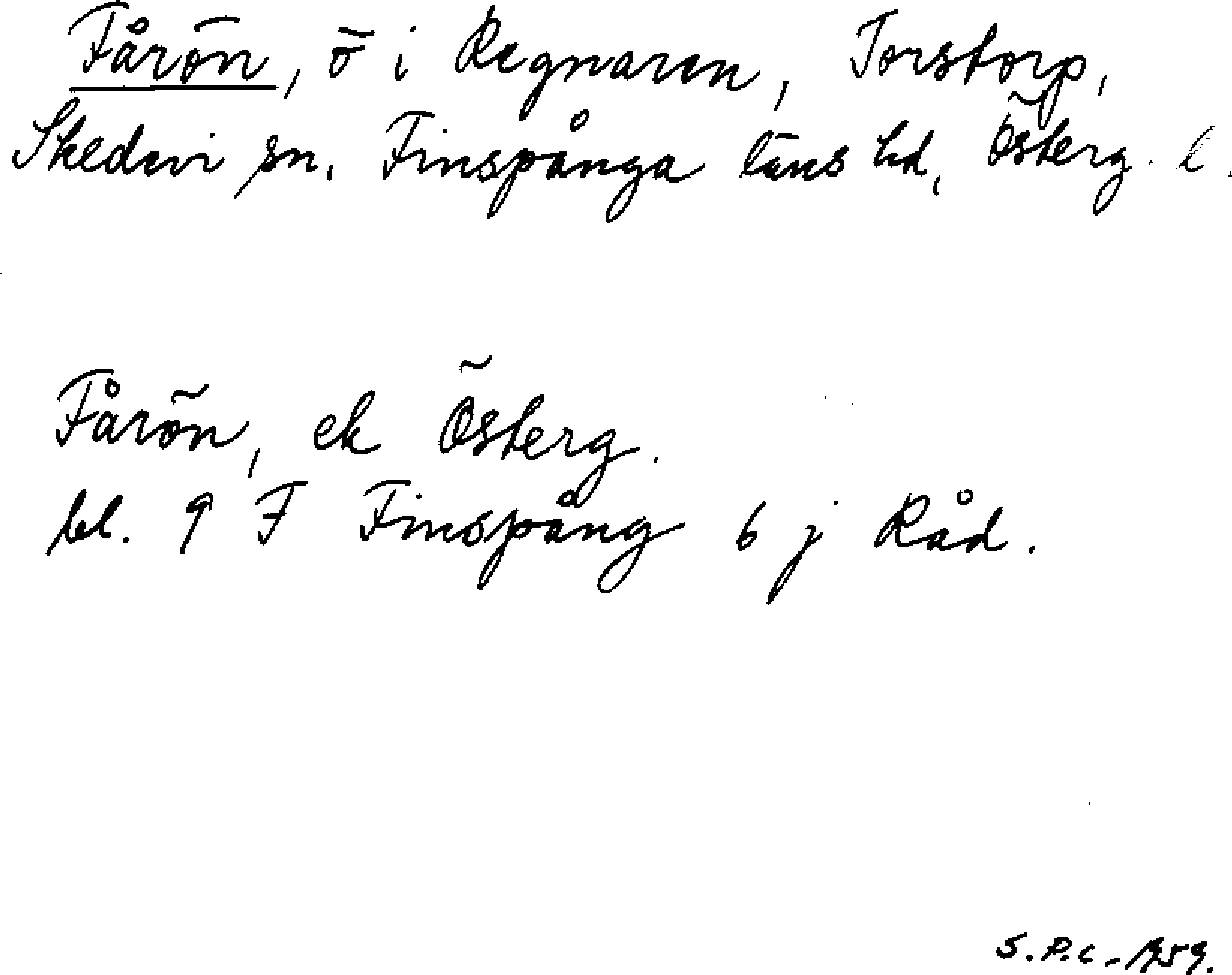 Fårön, ö i Regnaren, Torstorp,
Skedevi sn. Finspånga läns hd, Österg. l.
Fårön, ek Österg.
bl. 9 F Finspång 6 j Råd.
S.P.C. - 1959.